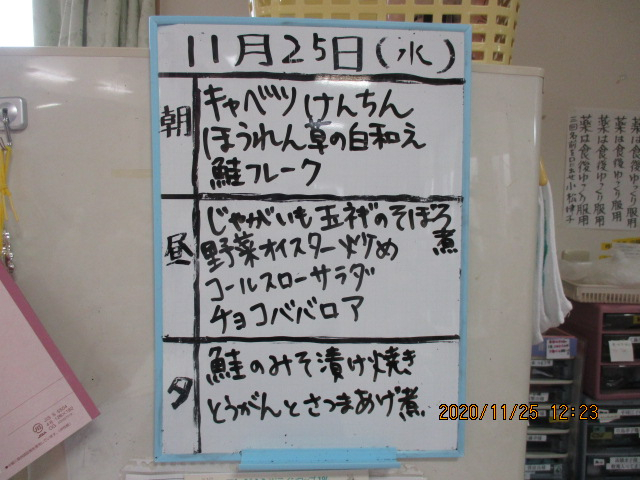 11月25日(水)
朝
キャベツけんちん
ほうれん草の白和え
鮭フレーク
昼
じゃがいも玉ネギのそぼろ煮
野菜オイスター炒め
コールスローサラダ
チョコババロア
夕
鮭のみそ漬け焼き
とうがんとさつまあげ煮
薬は食後ゆっくり服用
薬は食後ゆっくり服用
薬は食後ゆっくり服用
2020/11/25 12:23